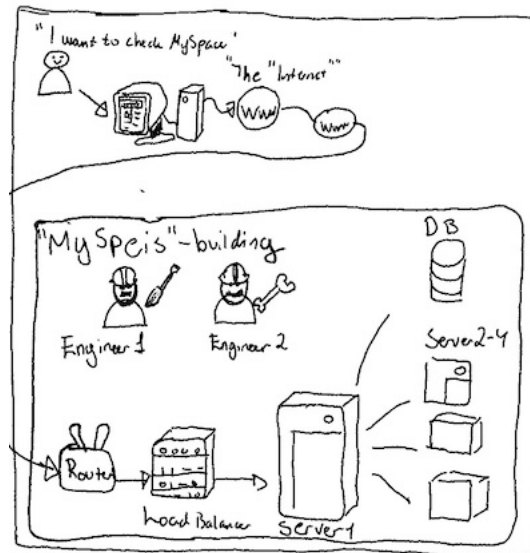 "I want to check MySpace"
"The "Internet""
WWW
WWW
"MySpeis"-building
DB
Engineer 1
Engineer 2
Server2-4
Router
Load Balancer
Server1